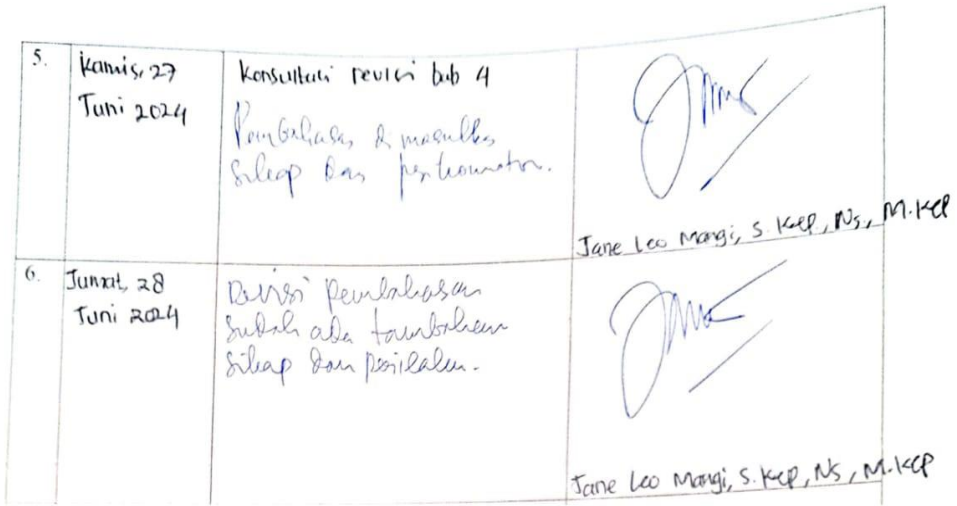 5.
Kamis, 27
Juni 2024
Konsultasi revisi bab 4
Pembahasan di masukkan
sikap dan
Jane Leo Mangi, S. Kep, Ns, M. Kep
6.
Jumat, 28
Juni 2024
Revisi pembahasan
sudah ada tambahan
sikap dan perilaku.
Jane Leo Mangi, S. Kep, Ns, M. Kep